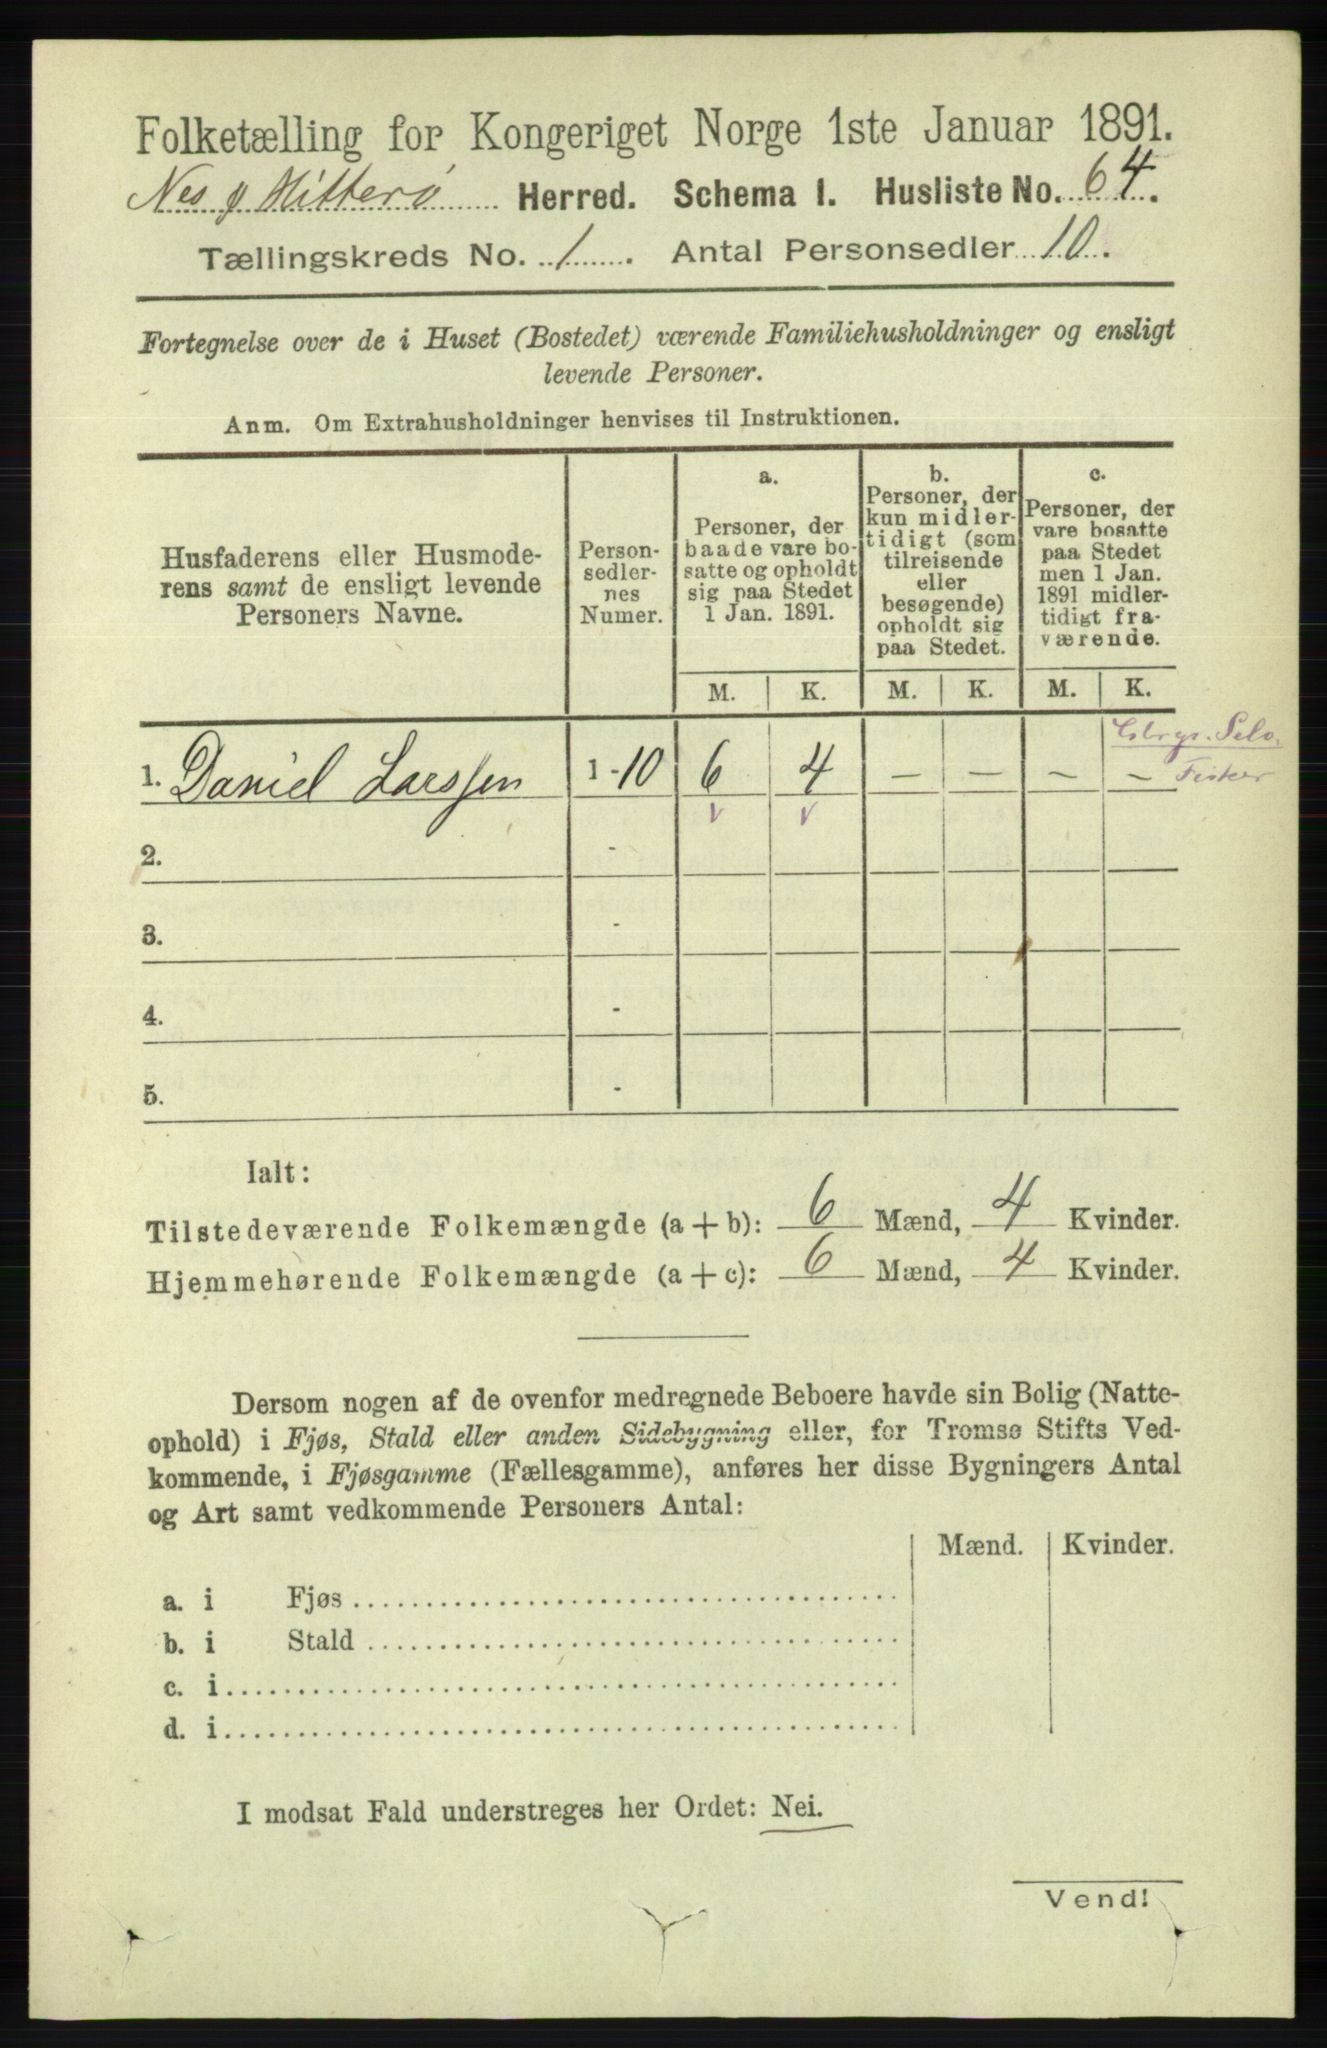 Folketælling for Kongeriget Norge 1ste Januar 1891.
Nes & Hitterø Herred. Schema I. Husliste No. 64.
Tællingskreds No. 1. Antal Personsedler 10.
Fortegnelse over de i Huset (Bostedet) værende Familiehusholdninger og ensligt
levende Personer.
Anm. Om Extrahusholdninger henvises til Instruktionen.
Husfaderens eller Husmode-
rens samt de ensligt levende
Personers Navne.
Person-
sedler-
nes
Numer.
a.
Personer, der
baade vare bo-
satte og opholdt
sig paa Stedet
1 Jan. 1891.
b.
Personer, der
kun midler-
tidigt (som
tilreisende
eller
besøgende)
opholdt sig
paa Stedet.
c.
Personer, der
vare bosatte
paa Stedet
men 1 Jan.
1891 midler-
tidigt fra-
værende.
M. K. M. K. M. K.
1. Daniel Larssen 1-10 6 4 – – – – Gbrgr. Selv.
Fisker
v v
2. -
3. -
4. -
5. -
Ialt:
Tilstedeværende Folkemængde (a + b): 6 Mænd, 4 Kvinder.
Hjemmehørende Folkemængde (a + c): 6 Mænd, 4 Kvinder.
Dersom nogen af de ovenfor medregnede Beboere havde sin Bolig (Natte-
ophold) i Fjøs, Stald eller anden Sidebygning eller, for Tromsø Stifts Ved-
kommende, i Fjøsgamme (Fællesgamme), anføres her disse Bygningers Antal
og Art samt vedkommende Personers Antal:
Mænd. Kvinder.
a. i Fjøs
b. i Stald
c. i
d. i
I modsat Fald understreges her Ordet: Nei.
Vend!